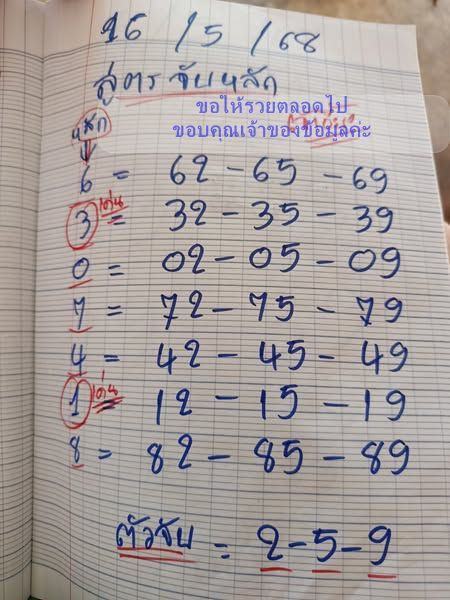 16 / 5 / 68
สูตรจับหลัก
ขอให้รวยตลอดไป
ขอบคุณเจ้าของข้อมูลค่ะ
หลัก
6 = 62 - 65 - 69
3 เด่น = 32 - 35 - 39
0 = 02 - 05 - 09
7 = 72 - 75 - 79
4 = 42 - 45 - 49
1 เด่น = 12 - 15 - 19
8 = 82 - 85 - 89
ตัวจับ = 2 - 5 - 9